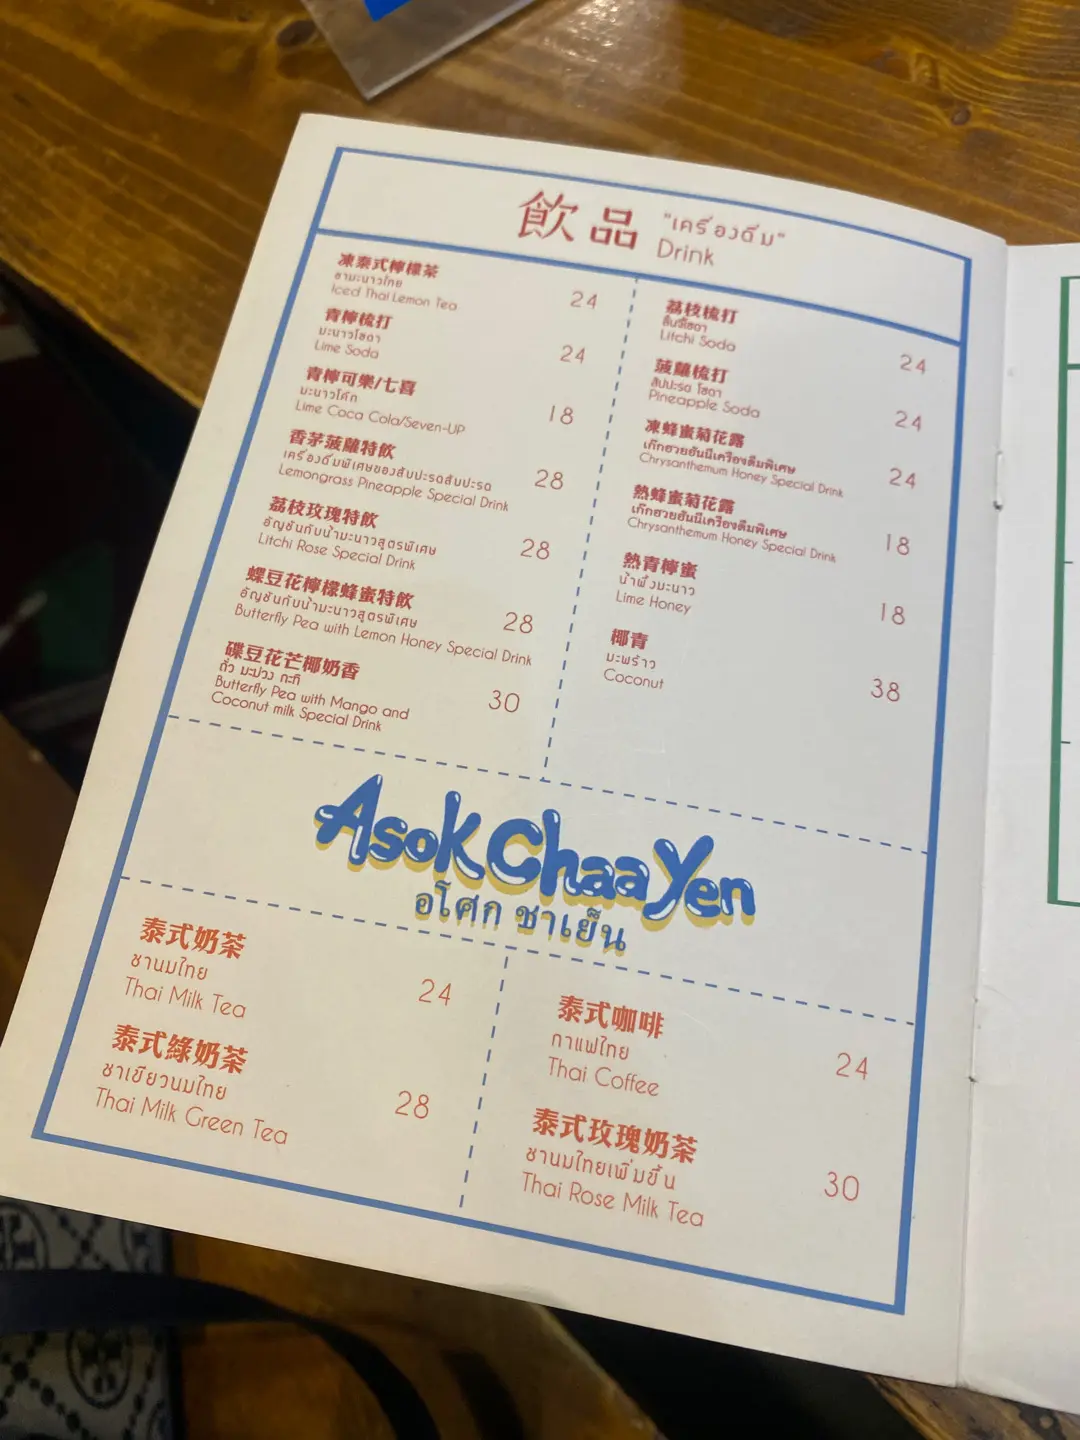 飲品
"เครื่องดื่ม"
Drink
凍泰式檸檬茶
ชามะนาวไทย
Iced Thai Lemon Tea
24
青檸梳打
มะนาวโซดา
Lime Soda
24
青檸可樂/七喜
มะนาวโค้ก
Lime Coca Cola/Seven-UP
18
香茅菠蘿特飲
เครื่องดื่มพิเศษของสับปะรดสับปะรด
Lemongrass Pineapple Special Drink
28
荔枝玫瑰特飲
อัญชันกับน้ำมะนาวสูตรพิเศษ
Litchi Rose Special Drink
28
蝶豆花檸檬蜂蜜特飲
อัญชันกับน้ำมะนาวสูตรพิเศษ
Butterfly Pea with Lemon Honey Special Drink
28
碟豆花芒椰奶香
ถั่ว มะม่วง กะทิ
Butterfly Pea with Mango and
Coconut milk Special Drink
30
荔枝梳打
ลิ้นจี่โซดา
Litchi Soda
24
菠蘿梳打
สัปปะรด โซดา
Pineapple Soda
24
凍蜂蜜菊花露
เก๊กฮวยฮันนี่เครื่องดื่มพิเศษ
Chrysanthemum Honey Special Drink
24
熱蜂蜜菊花露
เก๊กฮวยฮันนี่เครื่องดื่มพิเศษ
Chrysanthemum Honey Special Drink
18
熱青檸蜜
น้ำผึ้งมะนาว
Lime Honey
18
椰青
มะพร้าว
Coconut
38
Asok Chaa Yen
อโศก ชาเย็น
泰式奶茶
ชานมไทย
Thai Milk Tea
24
泰式綠奶茶
ชาเขียวนมไทย
Thai Milk Green Tea
28
泰式咖啡
กาแฟไทย
Thai Coffee
24
泰式玫瑰奶茶
ชานมไทยเพิ่มขึ้น
Thai Rose Milk Tea
30